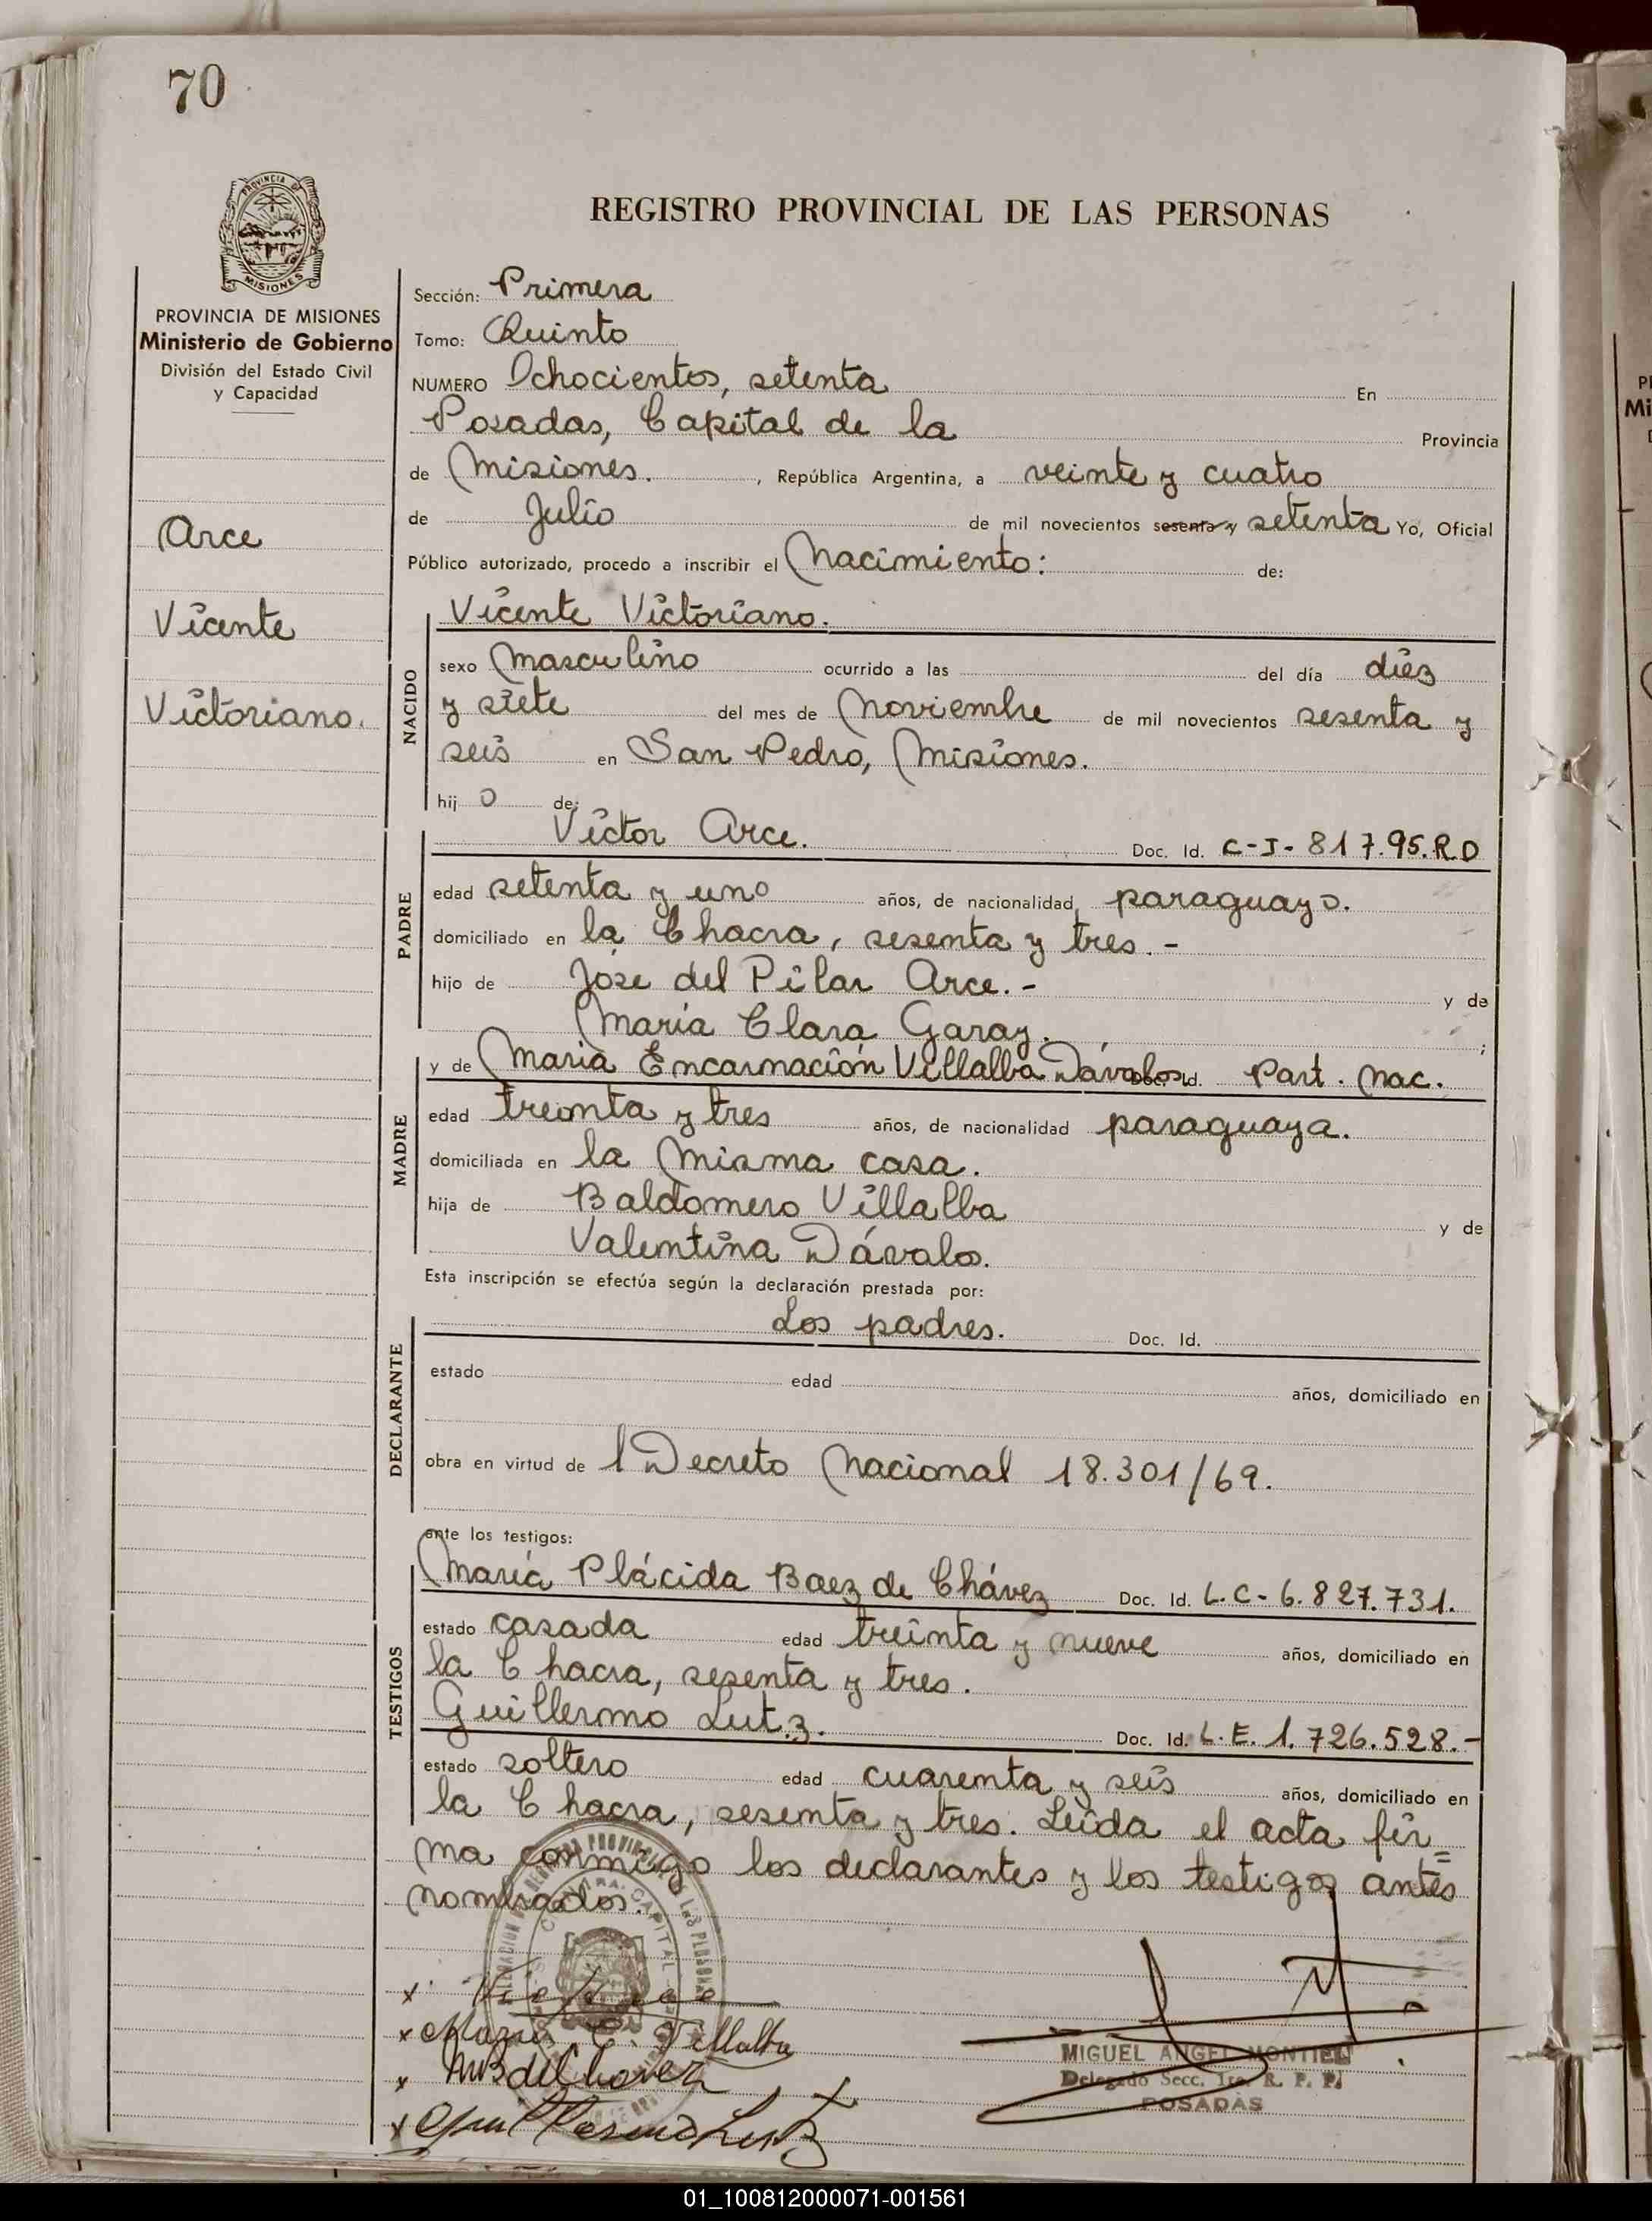 70
PROVINCIA DE
MISIONES
REGISTRO PROVINCIAL DE LAS PERSONAS
PROVINCIA DE MISIONES
Ministerio de Gobierno
División del Estado Civil
y Capacidad
Arce
Vicente
Victoriano.
Sección: Primera
Tomo: Quinto
NUMERO Ochocientos, setenta En
Posadas, Capital de la Provincia
de Misiones. , República Argentina, a veinte y cuatro
de Julio de mil novecientos sesenta y setenta Yo, Oficial
Público autorizado, procedo a inscribir el Nacimiento: de:
Vicente Victoriano.
NACIDO
sexo Masculino ocurrido a las del día diez
y siete del mes de Noviembre de mil novecientos sesenta y
seis en San Pedro, Misiones.
hij o de:
Víctor Arce. Doc. Id. C-I- 817.95.R.D
PADRE
edad setenta y uno años, de nacionalidad paraguayo.
domiciliado en la Chacra, sesenta y tres.-
hijo de José del Pilar Arce.- y de
María Clara Garay. ;
y de María Encarnación Villalba Dávalos Doc. Id. Part. Nac.
MADRE
edad treinta y tres años, de nacionalidad paraguaya.
domiciliada en la misma casa.
hija de Baldomero Villalba y de
Valentina Dávalos.
Esta inscripción se efectúa según la declaración prestada por:
Los padres. Doc. Id.
DECLARANTE
estado edad años, domiciliado en
obra en virtud de l Decreto Nacional 18.301/69.
ante los testigos:
María Plácida Baez de Chávez Doc. Id. L.C- 6.827.731.
TESTIGOS
estado casada edad treinta y nueve años, domiciliado en
la Chacra, sesenta y tres.
Guillermo Lutz. Doc. Id. L.E. 1.726.528.-
estado soltero edad cuarenta y seis años, domiciliado en
la Chacra, sesenta y tres. Leída el acta fir=
ma conmigo los declarantes y los testigos antes
nombrados.
x
x María E. Villalba
x MB de Chavez
x Guillermo Lutz
MIGUEL ANGEL MONTIEL
Delegado Secc. 1ra. R. P. P.
POSADAS
01_100812000071-001561